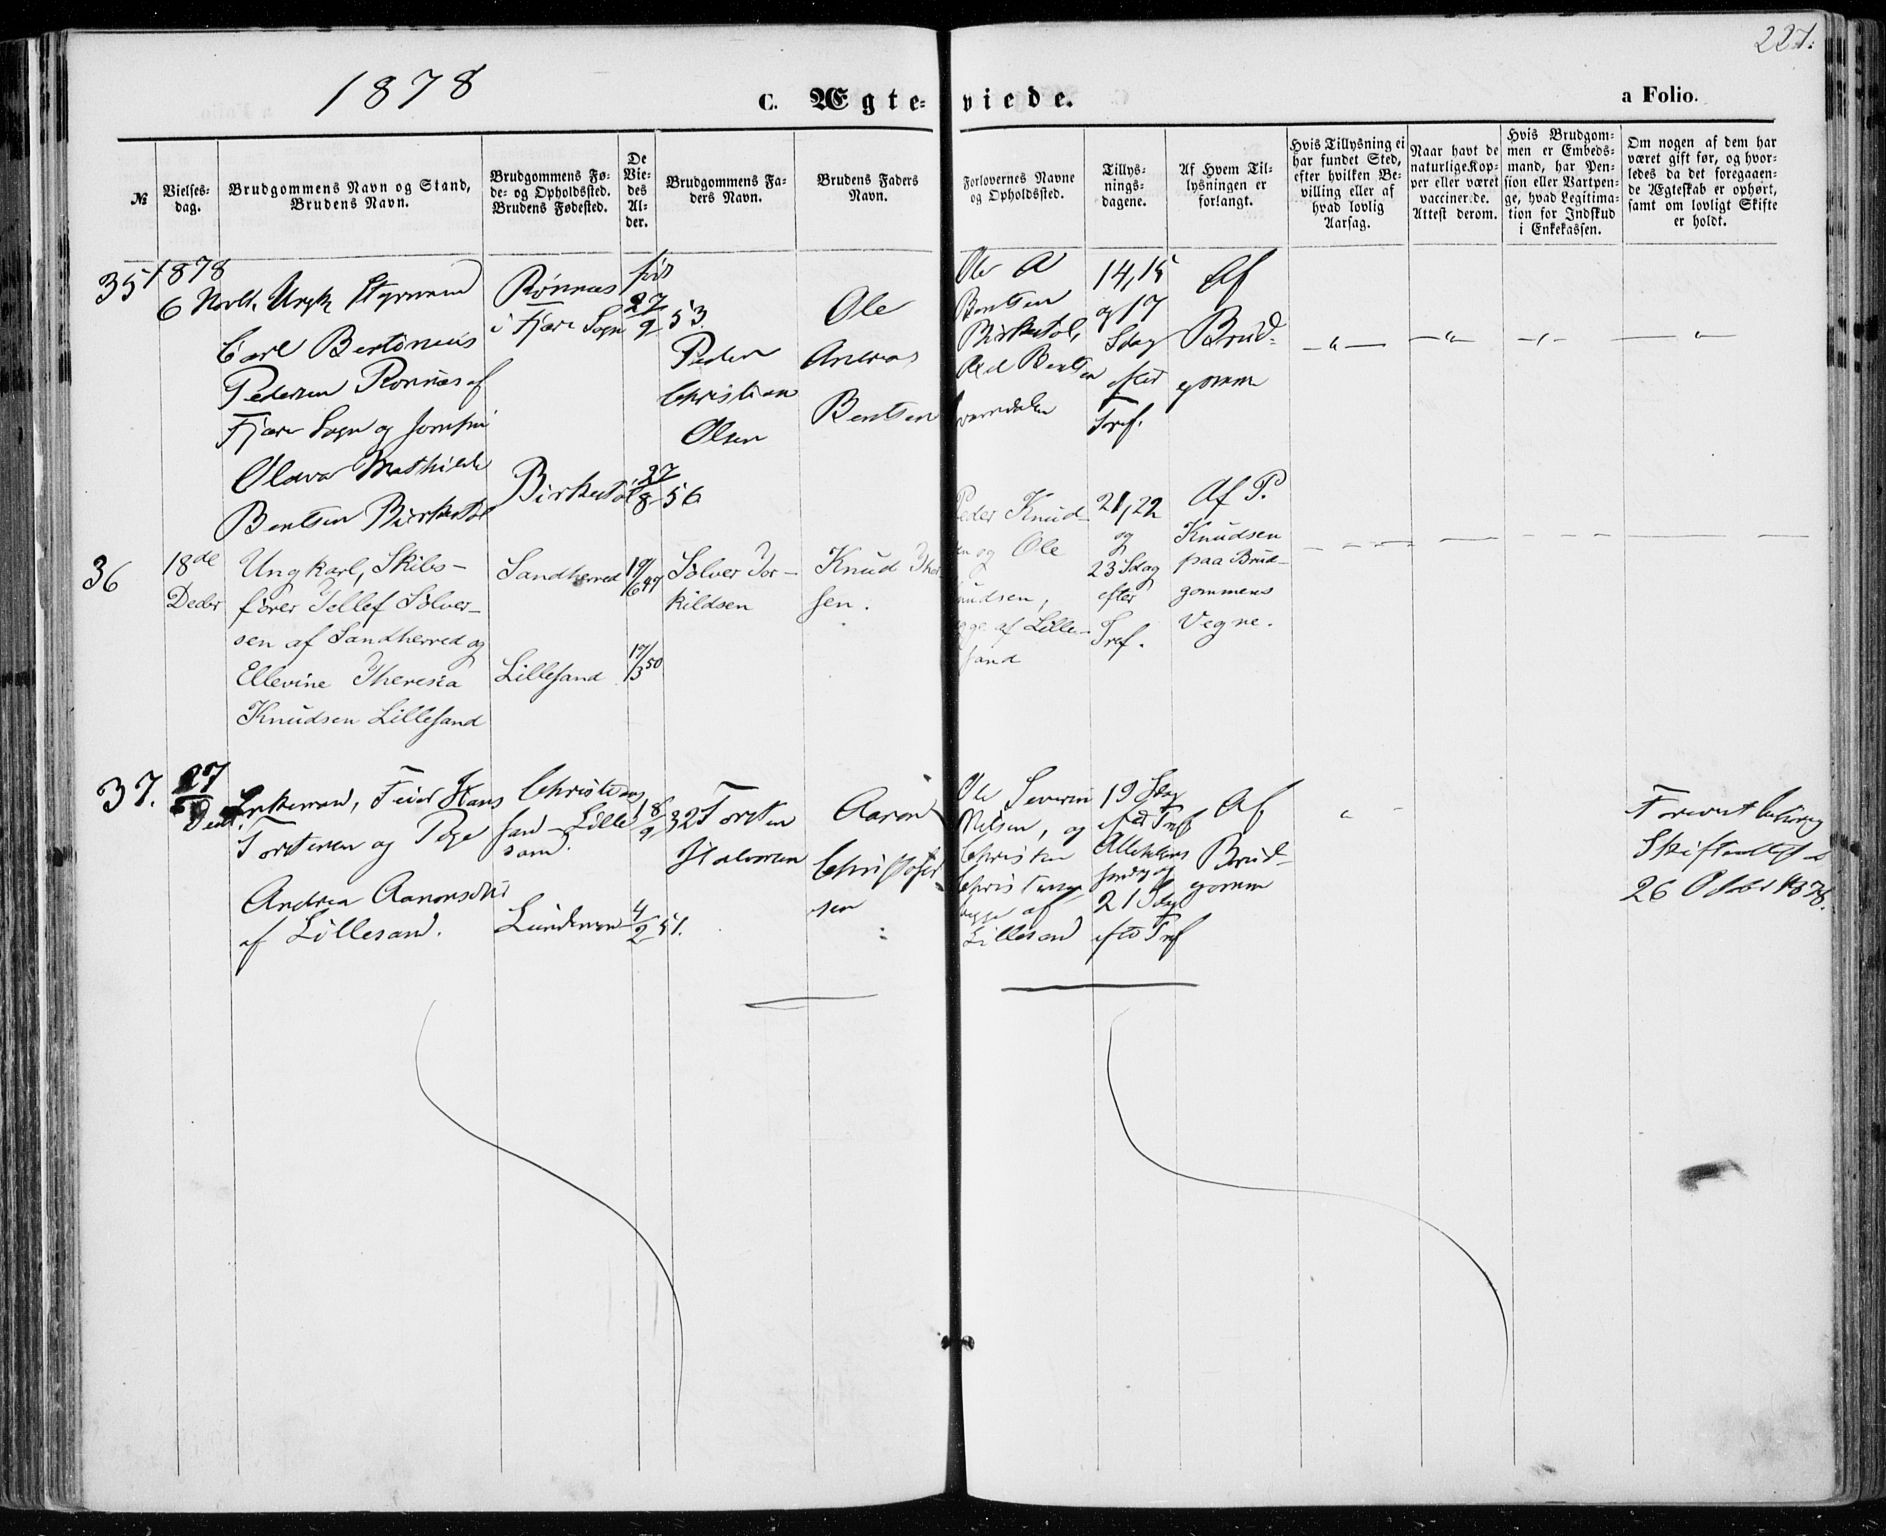 1878
221.
C. Ægte-viede.
a Folio.
№
Vielses-
dag.
Brudgommens Navn og Stand,
Brudens Navn.
Brudgommens Fø-
de- og Opholdssted.
Brudens Fødested.
De
Vie-
des
Al-
der.
Brudgommens Fa-
ders Navn.
Brudens Faders
Navn.
Forlovernes Navne
og Opholdssted.
Tillys-
nings-
dagene.
Af Hvem Til-
lysningen er
forlangt.
Hvis Tillysning ei
har fundet Sted,
efter hvilken Be-
villing eller af
hvad lovlig
Aarsag.
Naar havt de
naturlige Kop-
per eller været
vaccinerede.
Attest derom.
Hvis Brudgom-
men er Embeds-
mand, har Pen-
sion eller Vartpen-
ge, hvad Legitima-
tion for Indskud
i Enkekassen.
Om nogen af dem har
været gift før, og hvor-
ledes da det foregaaen-
de Ægteskab er ophørt,
samt om lovligt Skifte
er holdt.
35
1878
6
Carl
Pedersen Rønnes af
Fjære Sogn og
Olava Mathilde
Bentsen Birketøl
Rønnes
i Fjære Sogn
Birketøl
27/9 53
27/8 56
Peder
Christian
Olsen
Ole
Andreas
Bentsen
Ole A
Bentsen
Birketøl,
14, 15
og 17
Sdag
efter
Tref.
Af
Brud-
gomm
36
18de
Decbr
Ungkarl, Skibs-
fører Tellef Sølver-
sen af Sandherred og
Ellevine Theresia
Knudsen Lillesand
Sandherred
Lillesand
19/6 47
19/3 50
Sølver Tor-
kildsen
Knud
sen.
Peder Knud-
og Ole
Knudsen,
af Lille-
sand
21, 22
og
23 Sdag
efter
Tref.
Af P.
Knudsen
paa Brud-
gommens
Vegne.
37.
27
Enkemand, Hans
Torstensen og Pige
Andrea
af Lillesand.
Christians
sand - Lille
sand.
18/9 32
4/2 51.
Torsten
Halvorsen
Aaron
Christofer
sen
Ole Severin
Nielsen, og
Christen
begge af
Lillesand
19 Sdag
efter Tref
21 Sdag
efter Tref
Af
Brud-
gomm
Forevist
Skifteattest
26 Octbr 1878.